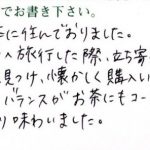 でお書き下さい。
に住んでおりました。
へ旅行した際、立ち寄
見つけ、懐かしく購入い
バランスがお茶にもコー
り味わいました。